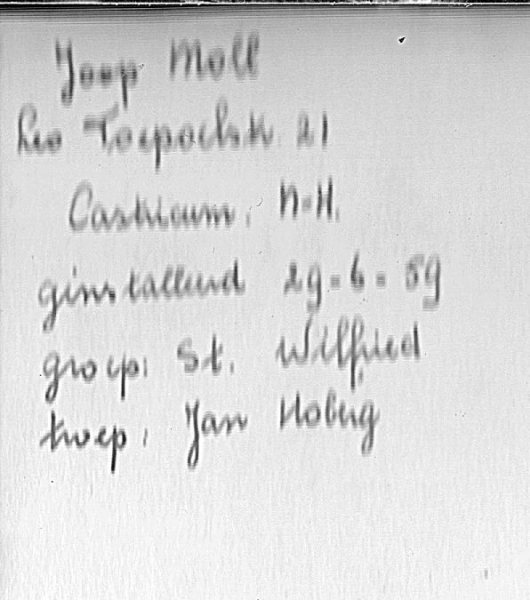 Joop Moll
Leo Toepoelstr 21
Castricum. N-H.
ginstalleerd 29-6-59
groep: St. Wilfried
troep: Jan Hoberg